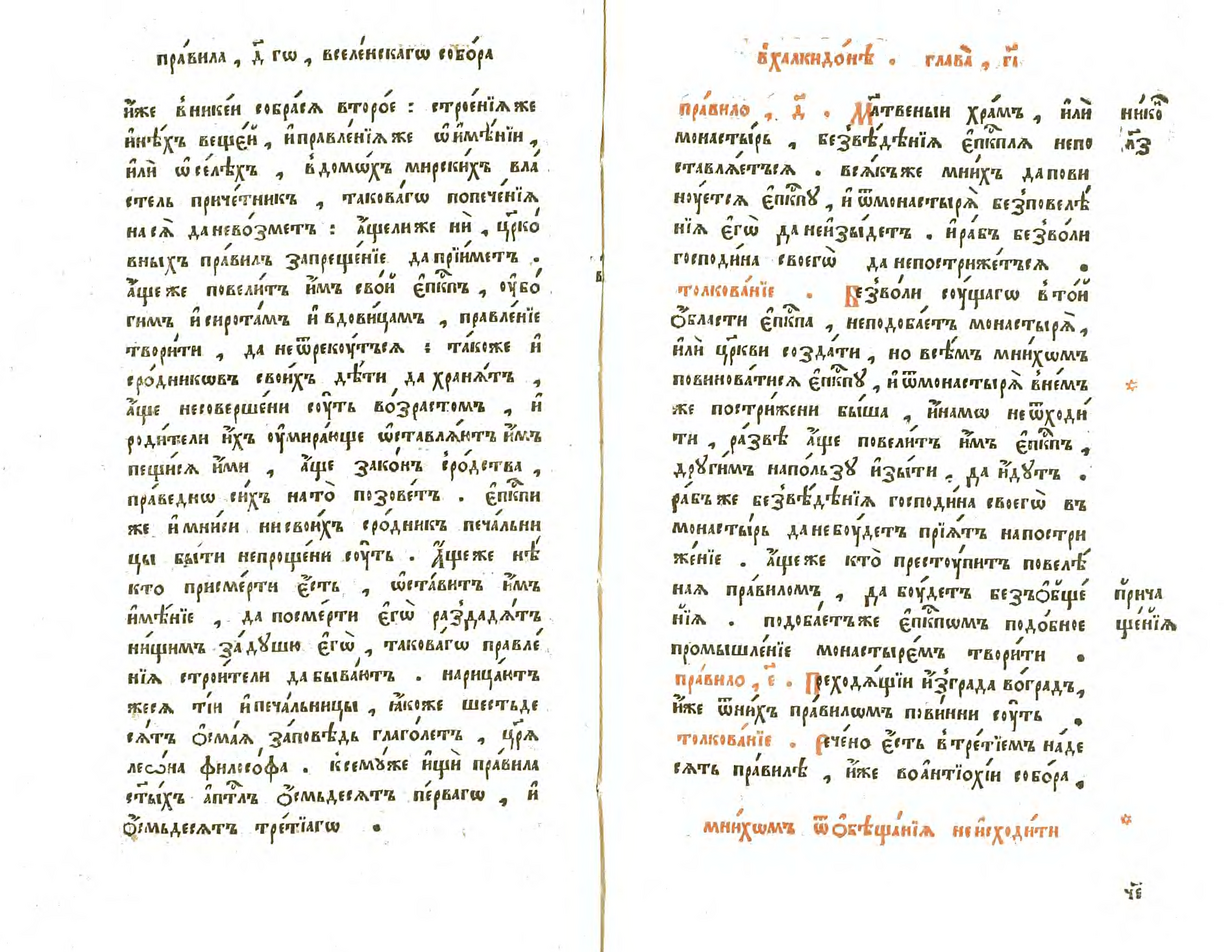 пра́вила , д҃ гѡ , вселе́нскагѡ собо́ра
и҆́же в̾нике́и собра́сѧ второ́е : строе́нїѧ же
и҆нѣ́хъ веще́й , и҆правле́нїѧ же ѿи҆мѣ́нїи ,
и҆лѝ ѡ҆се́лѣхъ , в̾домѡ́хъ мирски́хъ вла
стель приче́тникъ , такова́гѡ попече́нїѧ
на сѧ̀ даневозметъ : а҆́щели же нѝ , цр҃ко́
вныхъ пра́вилъ запреще́нїе да прїи́метъ .
а҆́ще же повели́тъ и҆̀мъ сво́й є҆пⷭ҇кпъ , ᲂу҆бѡ́
гимъ и҆сирота́мъ и҆вдови́цамъ , правле́нїе
твори́ти , да неѿреку́тъсѧ : та́коже и҆
сро́дникѡвъ свои́хъ дѣ́ти да храня́тъ ,
а҆́ще несоверше́ни сꙋ́ть во́зрастомъ , и҆
роди́тели и҆́хъ ᲂу҆мира́юще ѡ҆ставлѧ́ютъ и҆̀мъ
пещи́сѧ и҆́ми , а҆́ще зако́нъ сро́дства ,
пра́веднѡ си́хъ на то̀ позове́тъ . є҆пⷭ҇кпи
же и҆мни́си нисвои́хъ сро́дникъ печа́льни
цы бы́ти непроше́ни сꙋ́ть . А҆́ще же нѣ́
кто присме́рти є҆́сть , ѡ҆ста́витъ и҆̀мъ
и҆мѣ́нїе , да посме́рти є҆гѡ̀ раздадѧ́тъ
ни́щимъ за́ душю є҆гѡ̀ , такова́гѡ правле́
нїѧ строи́тели да быва́ютъ . нарица́ют
жесѧ ті́и и҆печа́льницы , ꙗ҆́коже шестьде
сѧ́тъ ѻ҆сма́ѧ за́повѣдь глаго́летъ , цр҃ѧ̀
леѡ́на филосо́фа . ксемꙋ́же и҆щѝ пра́вила
ст҃ы́хъ а҆пⷭ҇тлъ ѻ҆́смьдесѧтъ пе́рвагѡ , и҆
ѻ҆́смьдесѧтъ тре́тїагѡ .
в̾халкидо́нѣ . глава̀ , г҃і
пра́вило , д҃ . Мл҃твеныи хра́мъ , и҆лѝ
монасты́рь , безвѣ́дѣнїѧ є҆пⷭ҇кплѧ непо
ставлѧ́етъсѧ . всѧ́къ же мни́хъ да пови
нꙋ́етсѧ є҆пⷭ҇кпꙋ , и҆ ѿмонастырѧ̀ безповелѣ́
нїѧ є҆гѡ̀ да неи҆зы́детъ . и҆ ра́бъ безво́ли
господи́на своегѡ̀ да непострижетъсѧ .
толкова́нїе . Безво́ли сꙋ́щагѡ в̾то́й
ѻ҆́бласти є҆пⷭ҇кпа , неподоба́етъ монастырѧ̀ ,
и҆лѝ цр҃кви созда́ти , но всѣ́мъ мни́хѡмъ
повинова́тисѧ є҆пⷭ҇кпꙋ , и҆ ѿмонастырѧ̀ в̾не́мъ
же постри́жени бы́ша , и҆на́мѡ неѿходи́
ти , ра́звѣ а҆́ще повели́тъ и҆̀мъ є҆пⷭ҇кпъ ,
други́мъ напо́льзу и҆зы́ти . да и҆дꙋ́тъ .
ра́бъ же безвѣ́дѣнїѧ господи́на своегѡ̀ въ
монасты́рь да небꙋ́детъ прїѧ́тъ напостри
же́нїе . а҆́ще же кто̀ престꙋ́питъ повелѣ́
наѧ пра́виломъ , да бꙋ́детъ безъѻ҆́бще
нїѧ . подоба́етъ же є҆пⷭ҇кпѡмъ подо́бное
промышле́нїе монастыре́мъ твори́ти .
пра́вило , є҃ . Преходѧ́щїи и҆зъгра́да во́градъ ,
и҆́же ѿни́хъ пра́вилѡмъ пови́нни сꙋ́ть .
толкова́нїе . Речено̀ є҆́сть в̾тре́тїемъ на́де
сѧть пра́вилѣ , и҆́же воа҆нтїохі́и собо́ра .
мни́хѡмъ ѿѻ҆бѣща́нїѧ неи҆сходи́ти
нико́
л҃з
прича
ще́нїѧ
ч҃е